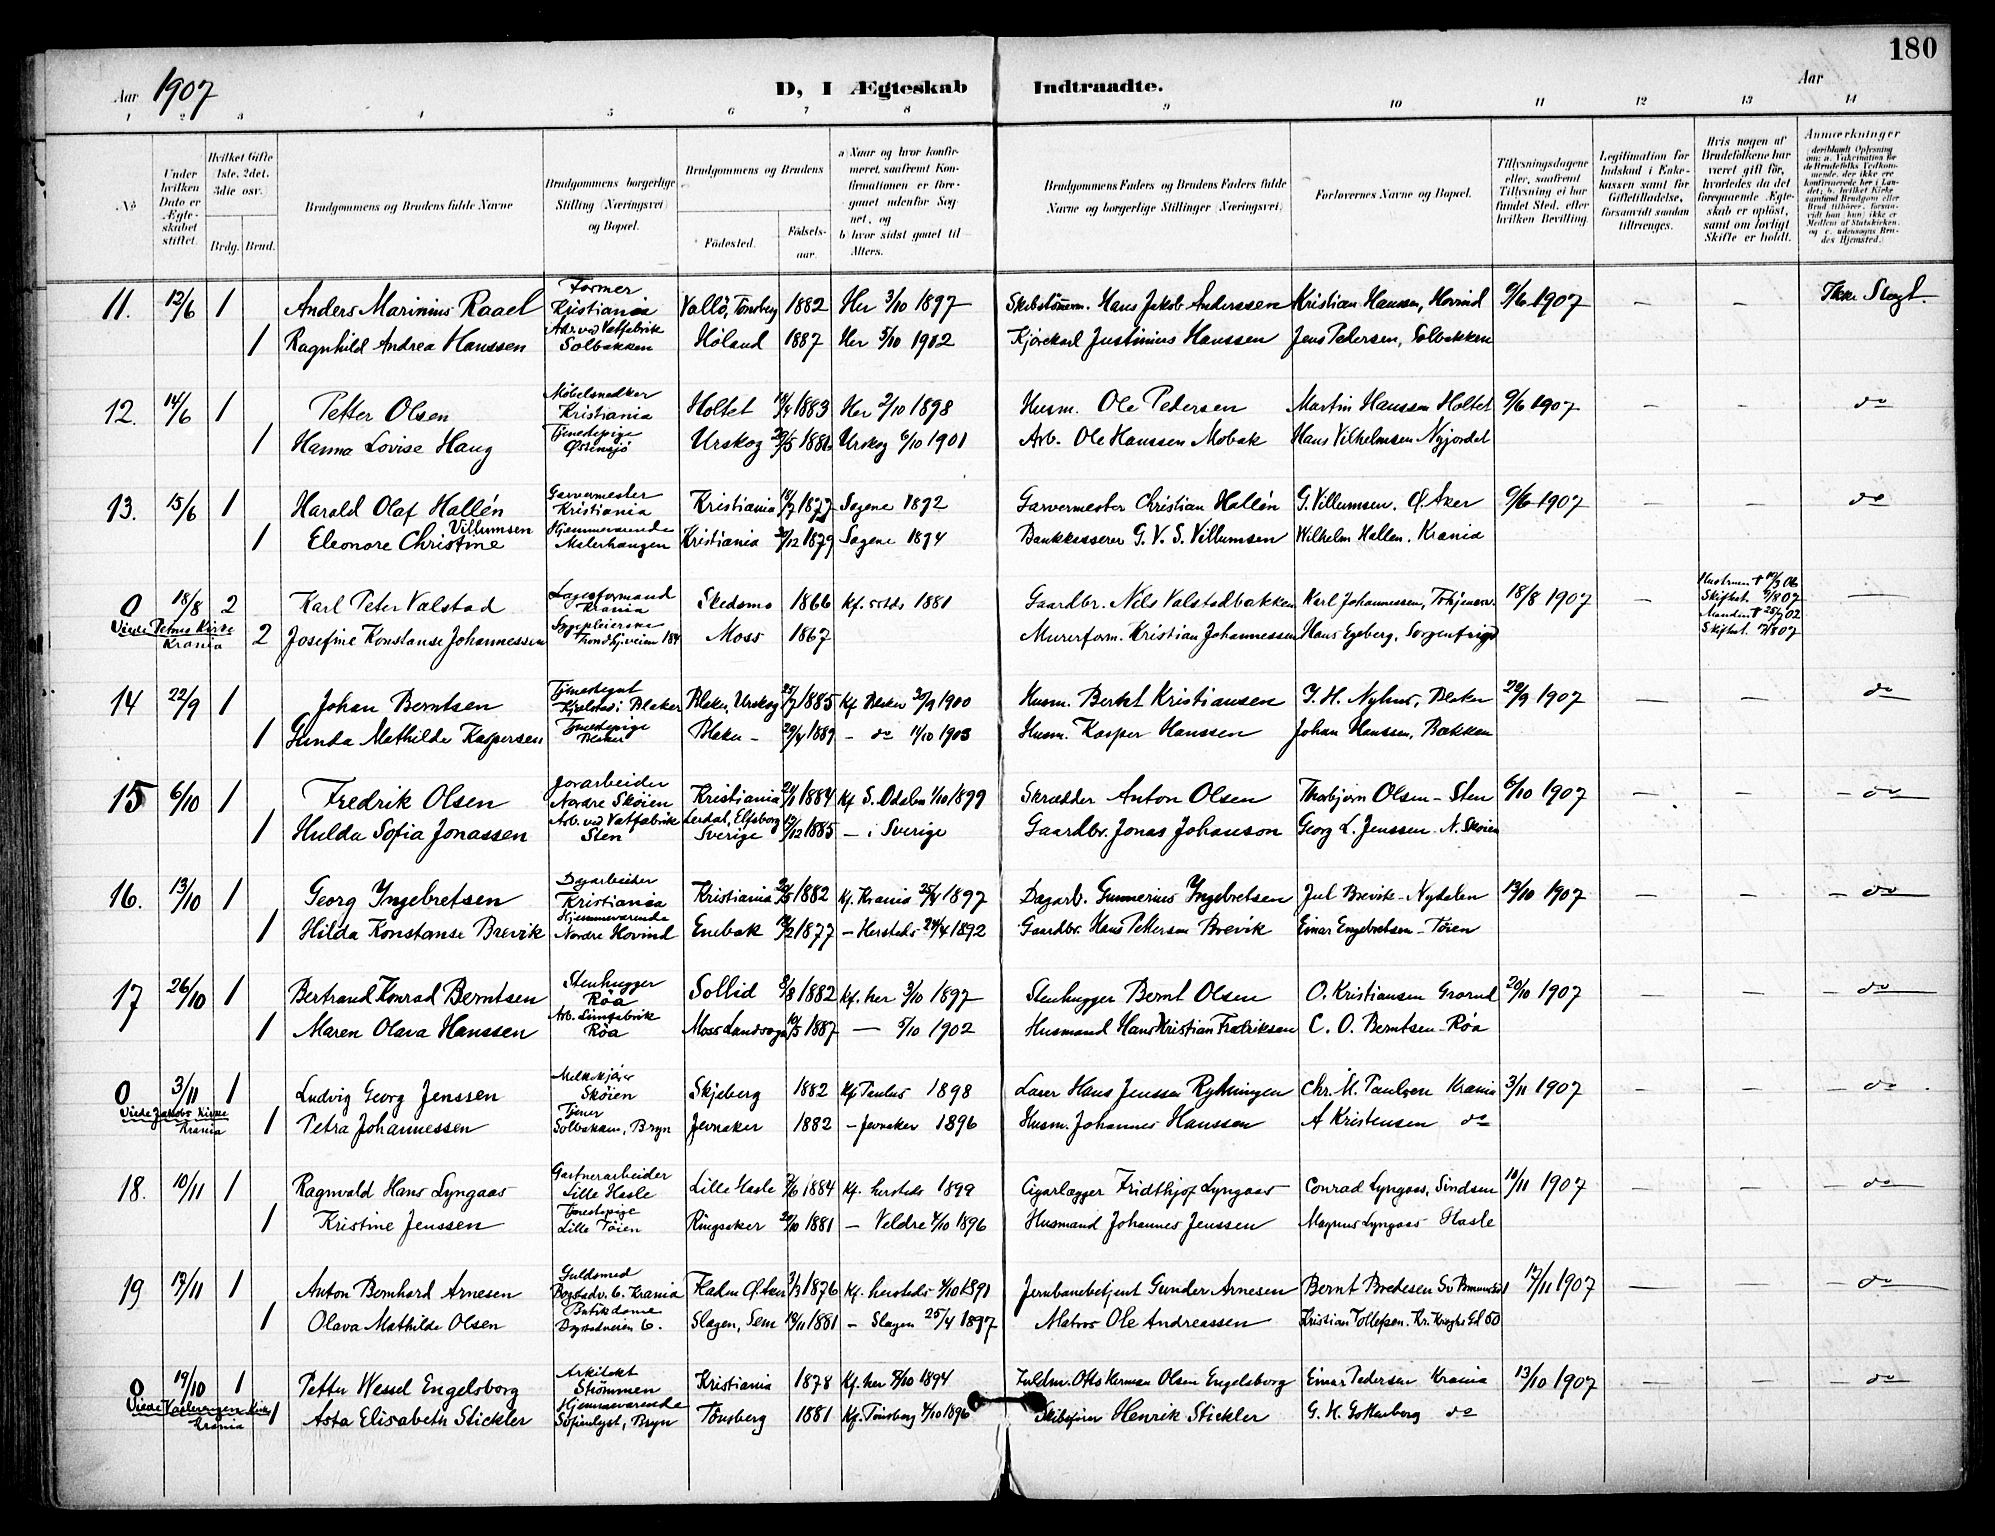 180
Aar 1907 D, I Ægteskab Indtraadte. Aar
1 2 3 4 5 6 7 8 9 10 11 12 13 14
No
Under hvilken Dato er Ægteskabet stiftet.
Hvilket Gifte 1ste, 2det, 3die osv.
Brdg. Brud.
Brudgommens og Brudens fulde Navne
Brudgommens borgerlige Stilling (Næringsvei) og Bopæl.
Brudgommens og Brudens
Födested. Födselsaar.
a) Naar og hvor konfirmeret, saafremt Konfirmationen er foregaaet udenför Sognet, og
b) hvor sidst gaaet til Alters.
Brudgommens Faders og Brudens Faders fulde Navne og borgerlige Stillinger (Næringsvei)
Forlovernes Navne og Bopæl.
Tillysningsdagene eller, saafremt Tillysning ei har fundet Sted, efter hvilken Bevilling.
Legitimation for Indskud i Enkekassen samt for Giftetilladelse, forsaavidt saadan tiltrænges.
Hvis nogen af Brudefolkene har været gift för, hvorledes da det foregaaende Ægteskab er oplöst, samt om lovligt Skifte er holdt.
Anmærkninger (deriblandt Oplysning om: a. Vakcination for de Brudefolks Vedkommende, der ikke ere konfirmerede her i Landet; b. hvilket Kirkesamfund Brudgom eller Brud tilhörer, forsaavidt han (hun) ikke er Medlem af Statskirken, og c. udensogns Brudes Hjemsted.)
11. 12/6 1 Anders Marinius Raael Former Kristiania Vallö, Tönsberg 1882 Her 3/10 1897 Skibstömm. Hans Jakob Anderssen Kristian Hanssen, Hovind 9/6 1907 — — Ikke Slægt.
1 Ragnhild Andrea Hanssen Arb. ved Vatfabrik Solbakken Höland 1887 Her 5/10 1902 Kjörekarl Justinius Hanssen Jens Pedersen, Solbakken
12. 14/6 1 Petter Olsen Möbelsnedker Kristiania Holtet 1883 Her 2/10 1898 Husm. Ole Pedersen Martin Hanssen Holtet 9/6 1907 — — do
1 Hanna Lovise Haug Tjenestepige Østensjö Urskog 1881 Urskog 6/10 1901 Arb. Ole Hanssen Mobak Hans Vilhelmsen Nyjordet
13. 15/6 1 Harald Olaf Hallén Garvermester Kristiania Kristiania 1877 Sagene 1892 Garvermester Christian Hallén G. Villumsen. Ø. Aker 9/6 1907 — — do
1 Eleonore Christine Villumsen Hjemmeværende Malerhaugen Kristiania 1879 Sagene 1894 Bankkasserer G. V. S. Villumsen Wilhelm Hallen. Krania
0 18/8 2 Karl Peter Valstad Lagerformand Krania Skedsmo 1866 Kf. 1881 Gaardbr. Nils Valstadbakken Karl Johannessen, 18/8 1907 — Hustruen † 06 Skiftet. 07 —
Viede Petrus Kirke Krania 2 Josefine Konstanse Johannessen Sygepleierske Trondhjemveien Moss 1867 Murerform. Kristian Johannessen Hans Egeberg, Sorgenfrigd Manden † 02 Skiftet. 07
14 22/9 1 Johan Berntsen Tjenestegut Kjelstad i Blaker Blaker, Urskog 25/7 1885 Kf Blaker 30/9 1900 Husm. Berhet Kristiansen J. H. Nyhus, Blaker 22/9 1907 — — do
1 Gunda Mathilde Kaspersen Tjenestepige Blaker Blaker – 29/4 1889 – do 11/10 1903 Husm. Kasper Hanssen Johan Hanssen, Bakken
15 6/10 1 Fredrik Olsen Jordarbeider Nordre Skøien Kristiania 1884 Kf S. Odalen 1/10 1899 Skrædder Anton Olsen Thorbjörn Olsen – Sten 6/10 1907 — — do
1 Hulda Sofia Jonassen Arb. ved Vatfabrik Sten Lerdal, Elfsborg Sverige 12/12 1885 – i Sverige Gaardbr. Jonas Johanson Georg L. Jenssen – N. Skøien
16. 13/10 1 Georg Yngebretsen Dagarbeider Kristiania Kristiania 1882 Kf. Krania 25/4 1897 Dagarb. Gunnerius Yngebretsen Jul Brevik – Nydalen 13/10 1907 — — do
1 Hilda Konstanse Brevik Hjemmeværende Nordre Hovind Enebak 1877 – Hersteds 24/4 1892 Gaardbr. Hans Pettersen Brevik Einar Engebretsen – Töien
17 26/10 1 Bertrand Konrad Berntsen Stenhugger Røa Sollid 8/8 1882 Kf. her 3/10 1897 Stenhugger Bernt Olsen O. Kristiansen Grorud 20/10 1907 — — do
1 Maren Olava Hanssen Arb. Limfabrik Røa Moss Landsogn 10/5 1887 — 5/10 1902 Husmand Hans Kristian Fredriksen C. O. Berntsen – Røa
0 3/11 1 Ludvig Georg Jenssen Melkekjører Skøien Skjeberg 1882 Kf Paulus 1898 Laser Hans Jenssen Rykningen Chr. M. Paulsen Krania 3/11 1907 — — do
Viede Jakobs Kirke Krania 1 Petra Johannessen Tjener Solbakken, Bryn Jevnaker 1882 – Jevnaker 1896 Husm. Johannes Hanssen A Kristensen do
18. 10/11 1 Ragnvald Hans Lyngaas Gartnerarbeider Lille Hasle Lille Hasle 1884 Kf. hersteds 1899 Cigarlægger Fridthjof Lyngaas Conrad Lyngaas, Sindsen 10/11 1907 — — do
1 Kristine Jenssen Tjenestepige Lille Töien Ringsaker 1881 – Veldre 4/10 1896 Husmand Johannes Jenssen Magnus Lyngaas Hasle
19 17/11 1 Anton Bernhard Arnesen Guldsmed Bogstadv. 6. Krania Ø. Aker 1876 Kf. hersteds 4/10 1891 Jernbanebetjent Gunder Arnesen Bernt Bredesen 17/11 1907 — — do
1 Olava Mathilde Olsen Butikdame Bogstadveien 6. Slagen, Sem 1881 – Slagen 25/4 1897 Matros Ole Andreassen Kristian Tollefsen. Kr. Kroghs Gd 50
0 19/10 1 Petter Wessel Engelsborg Arkitekt Strömmen Kristiania 1878 Kf. her 1894 Fuldm. Otto Herman Olsen Engelsborg Einar Pedersen Krania 13/10 1907 — — do
Viede Vaalerengens Kirke Krania 1 Asta Elisabeth Stickler Hjemmeværende Sofienlyst, Bryn Tönsberg 1881 Kf. Tönsberg 4/10 1896 Skibsförer Henrik Stickler G. H. Gottenborg do